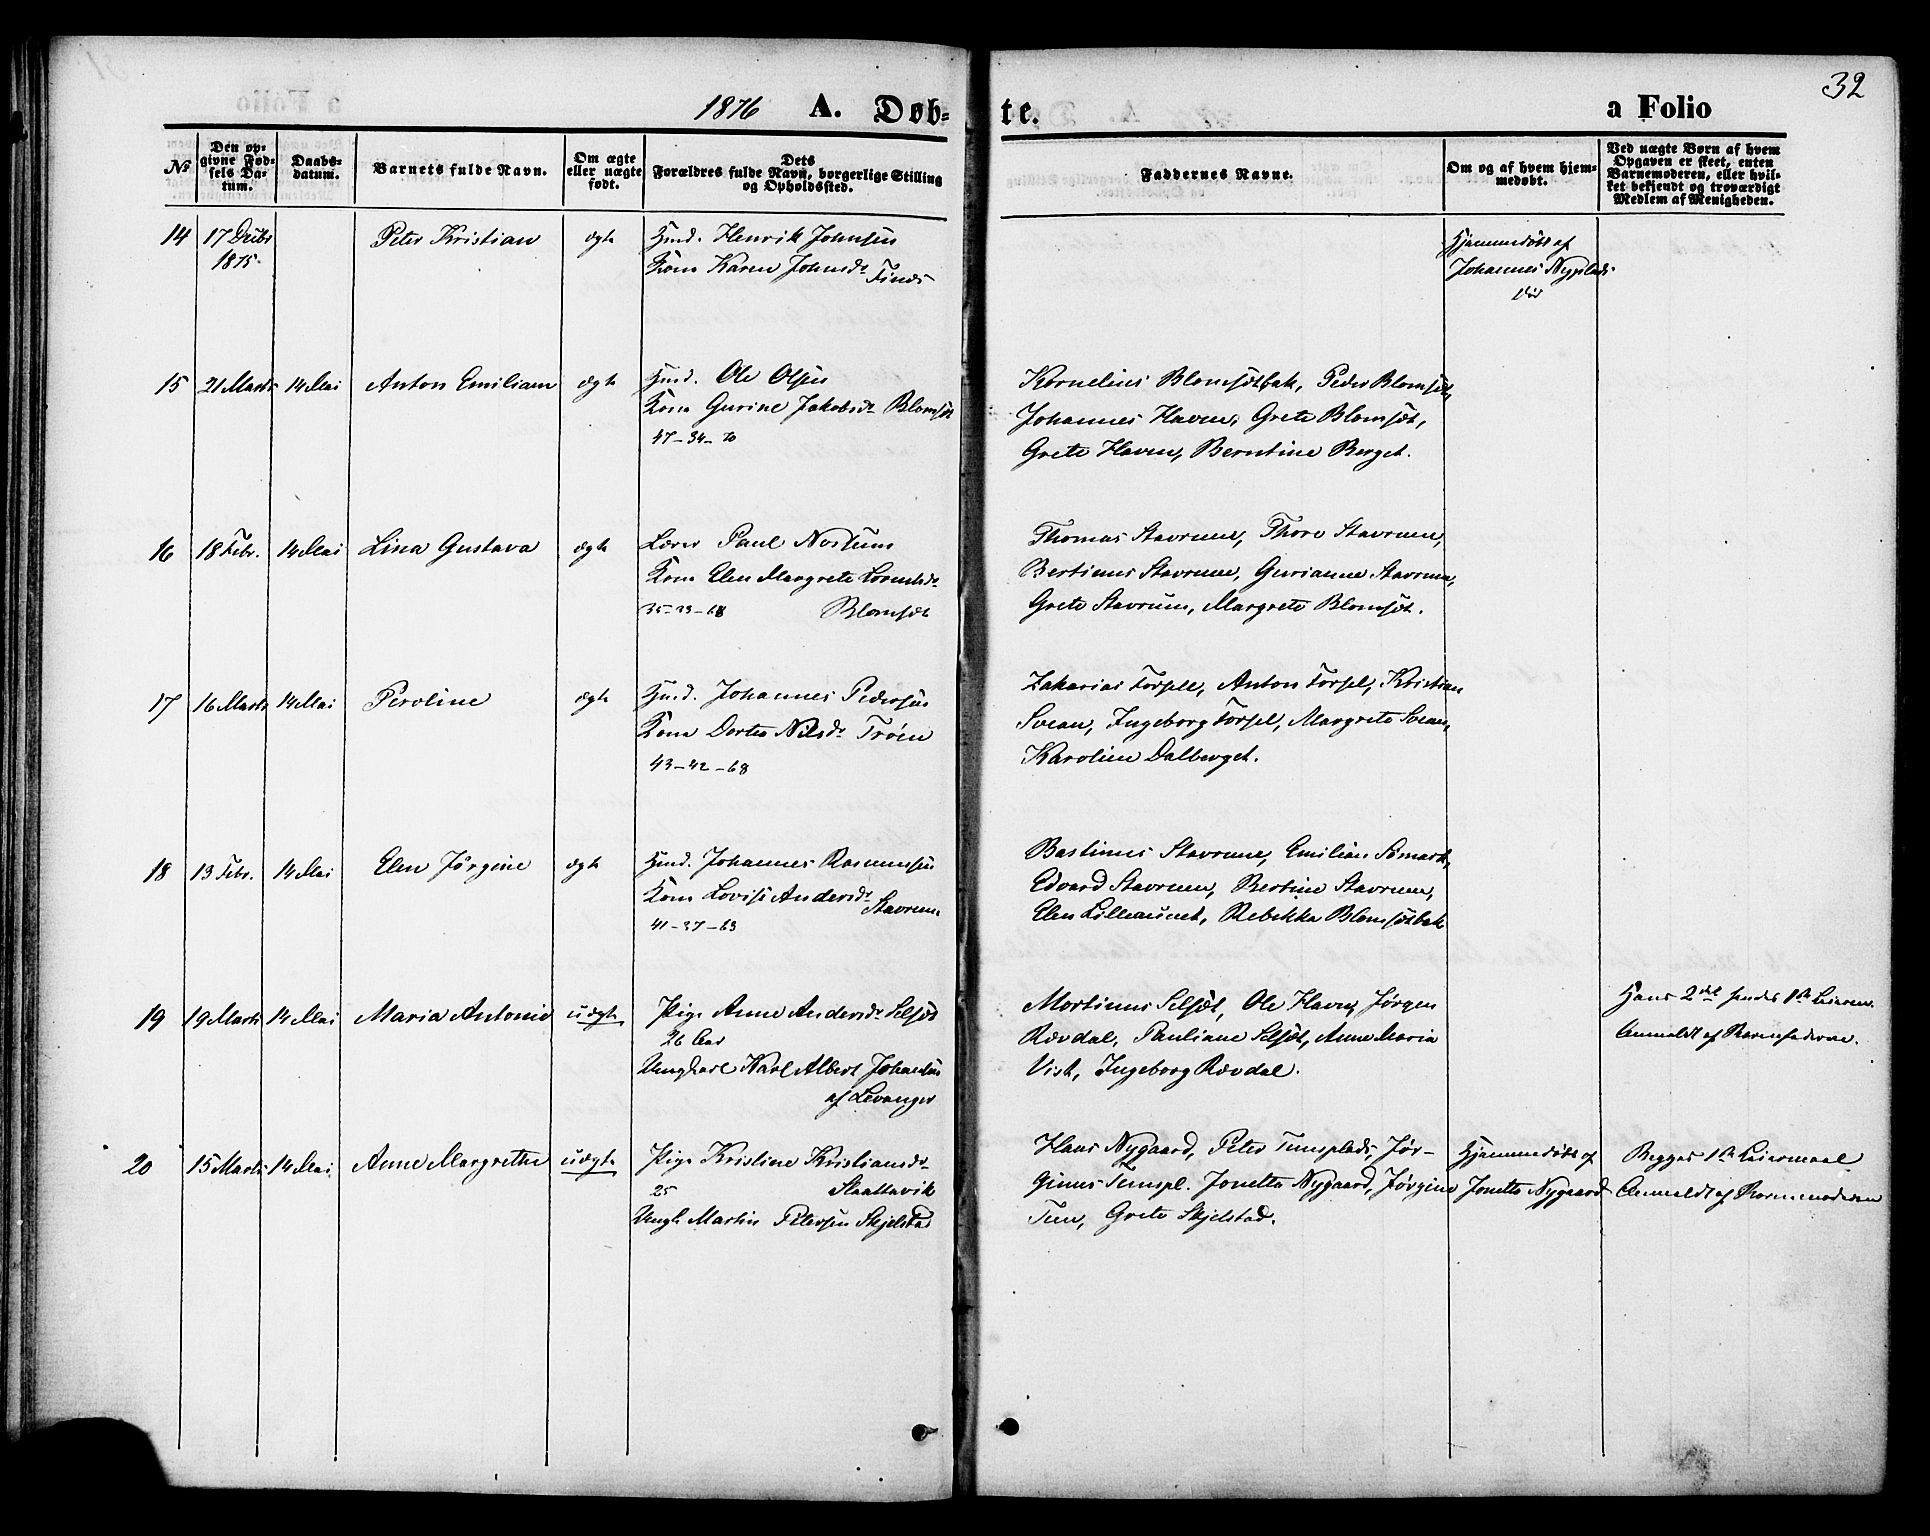 32
1876 A. Døb-
te.
a Folio
No
Den op-
givne Fød-
sels Da-
tum.
Daabs-
datum.
Barnets fulde Navn.
Om ægte
eller uægte
født.
Dets
Forældres fulde Navn, borgerlige Stilling
og Opholdssted.
Faddernes Navne.
Om og af hvem hjem-
medøbt.
Ved uægte Børn af hvem
Opgaven er skeet, enten
Barnemoderen, eller hvil-
ket bekjendt og troværdigt
Medlem af Menigheden.
14 17 Decbr Peter Kristian ægte Hmd. Henrik Johnsen Hjemmedøbt af
1875. Kone Karen Johnsdr Johannes Nyplads
død
15 21 Marts 14 Mai Anton Emilian ægte Hmd. Ole Olsen Kornelius Blomsøtbak, Peder Blomsøt,
Kone Gurine Jakobsdr Blomsøt Johannes Haven, Grete Blomsøt,
47-34-70 Grete Haven, Berntine Berget.
16 18 Febr. 14 Mai Lina Gustava ægte Lærer Paul Norsum Thomas Stavrum, Thore Stavrum,
Kone Elen Margrete Bertinus Stavrum, Gurianne Stavrum,
35-33-68 Blomsøt Grete Stavrum, Margrete Blomsøt.
17 16 Marts 14 Mai Peroline ægte Hmd. Johannes Pedersen Zakarias Forsel, Anton Forsel, Kristian
Kone Dortea Nilsdr Trøen Svean, Ingeborg Forsel, Margrete Svean,
43-42-68 Karoline Dalberget.
18 13 Febr. 14 Mai Elen Jørgine ægte Hmd. Johannes Rasmussen Bastinus Stavrum, Emilian
Kone Lovise Andersdr Stavrum Edvard Stavrum, Bertine Stavrum,
41-37-63 Elen Lilleaunet, Rebekka Blomsøtbak
19 19 Marts 14 Mai Maria Antonie uægte Pige Anne Andersdr Selsøt Mortinus Selsøt, Ole Haven, Jørgen Hans 2det hendes 1ste Leierm.
26 Aar Rævdal, Pauliane Selsøt, Anne Maria Anmeldt af Barnefaderen.
Ungkarl Karl Albert Johansen Vist, Ingeborg Rævdal.
af Levanger
20 15 Marts 14 Mai Anne Margrethe uægte Pige Kristine Kristiansdr Hans Nygaard, Peter Tunsplads, Jør- Hjemmedøbt af Begges 1ste Leiermaal
25 Slaattavik ginus Tunspl. Jonetta Nygaard, Jørgine Jonetta Nygaard Anmeldt af Barnemoderen
Ungk. Martin Petersen Skjelstad Tun, Grete Skjelstad.